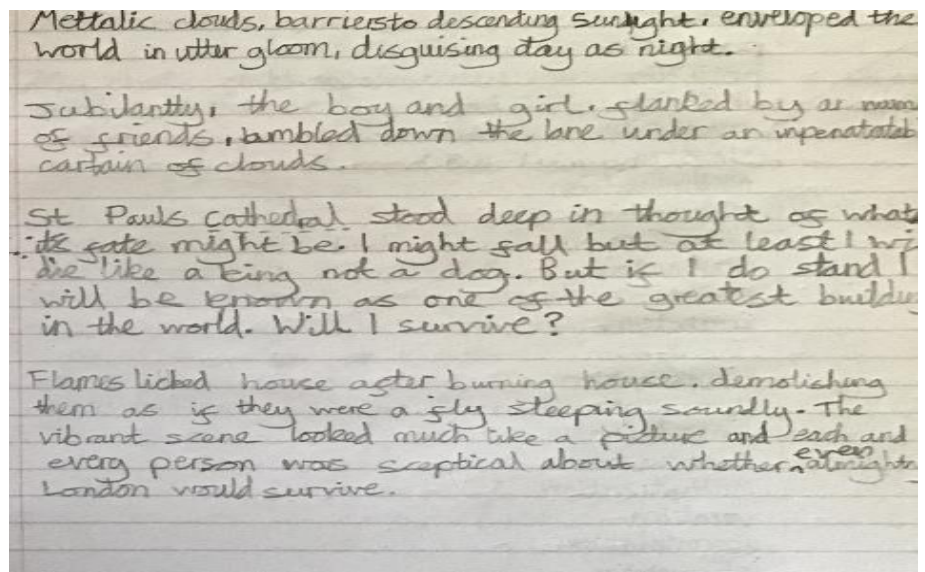 Mettalic clouds, barriers to descending sunlight, enveloped the
world in utter gloom, disguising day as night.
Jubilantly, the boy and girl, flanked by a
of friends, ambled down the lane under an
cartain of clouds.
St Pauls cathedral stood deep in thought of what
its fate might be. I might fall but at least I
die like a king not a dog. But if I do stand I
will be known as one of the greatest
in the world. Will I survive?
Flames licked house after burning house, demolishing
them as if they were a fly sleeping soundly. The
vibrant scene looked much like a picture and each and
every person was sceptical about whether even
London would survive.